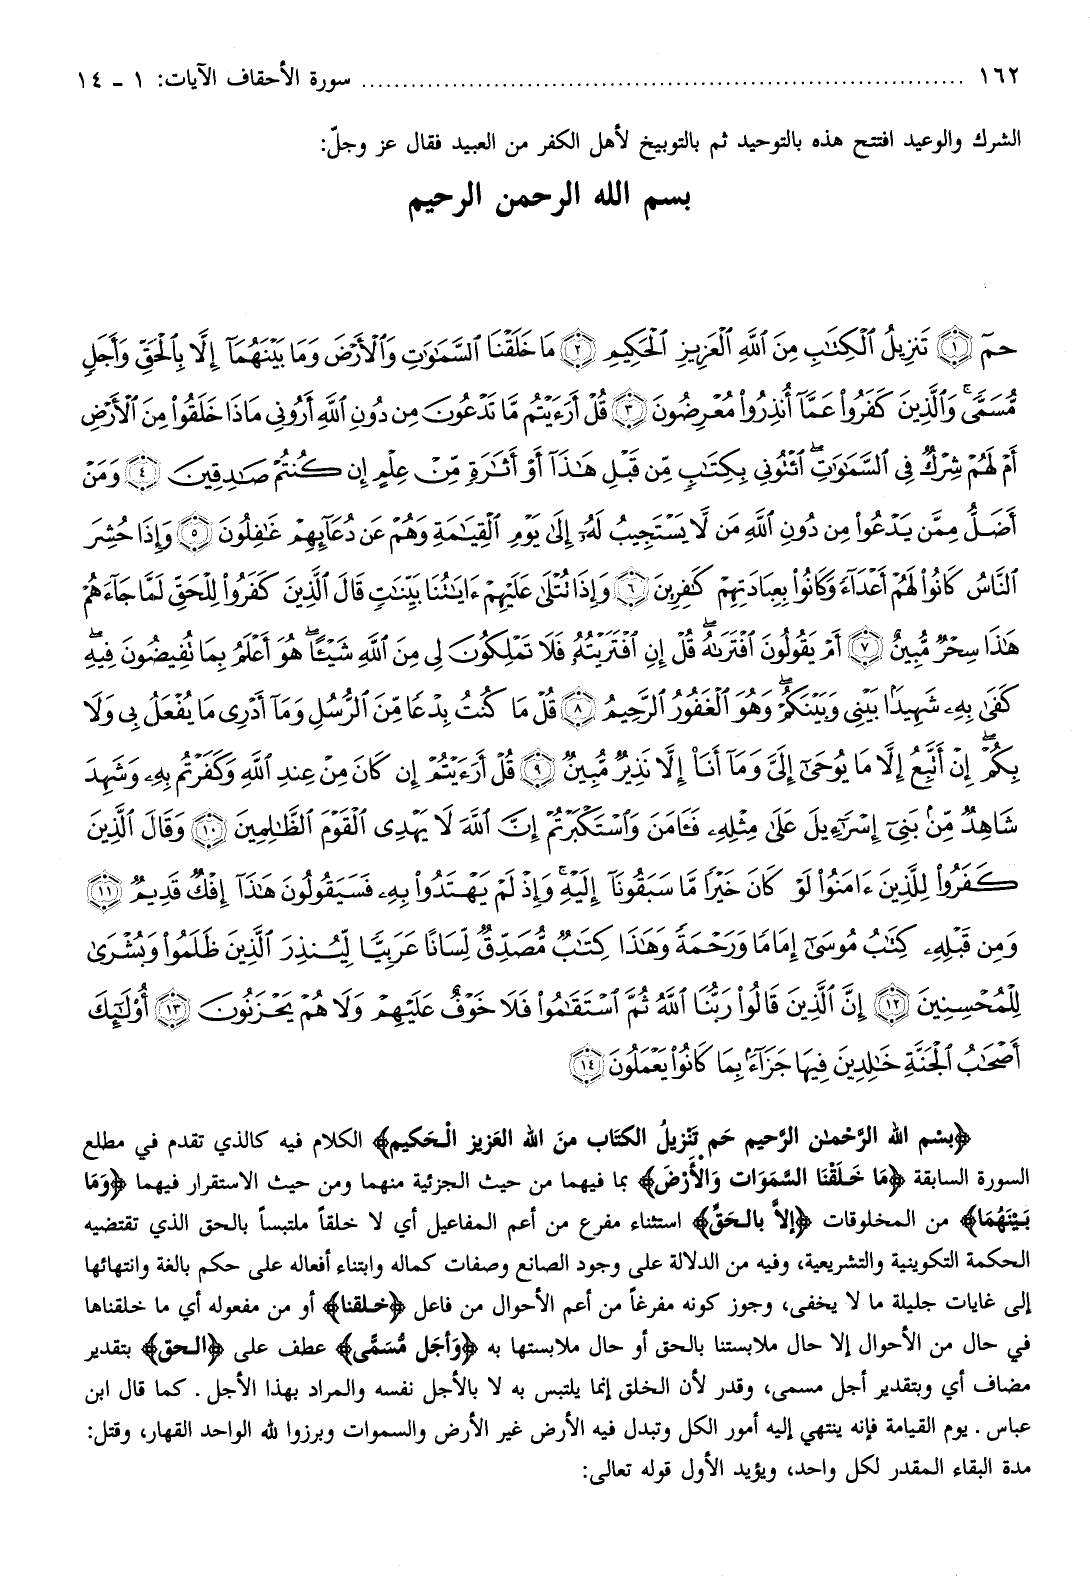 ١٦٢ ........................................................................ سورة الأحقاف الآيات: ١ - ١٤
الشرك والوعيد افتتح هذه بالتوحيد ثم بالتوبيخ لأهل الكفر من العبيد فقال عز وجلّ:
بسم الله الرحمن الرحيم
حمٓ ١ تَنزِيلُ ٱلْكِتَٰبِ مِنَ ٱللَّهِ ٱلْعَزِيزِ ٱلْحَكِيمِ ٢ مَا خَلَقْنَا ٱلسَّمَٰوَٰتِ وَٱلْأَرْضَ وَمَا بَيْنَهُمَآ إِلَّا بِٱلْحَقِّ وَأَجَلٍ
مُّسَمًّى ۚ وَٱلَّذِينَ كَفَرُوا۟ عَمَّآ أُنذِرُوا۟ مُعْرِضُونَ ٣ قُلْ أَرَءَيْتُم مَّا تَدْعُونَ مِن دُونِ ٱللَّهِ أَرُونِى مَاذَا خَلَقُوا۟ مِنَ ٱلْأَرْضِ
أَمْ لَهُمْ شِرْكٌ فِى ٱلسَّمَٰوَٰتِ ۖ ٱئْتُونِى بِكِتَٰبٍ مِّن قَبْلِ هَٰذَآ أَوْ أَثَٰرَةٍ مِّنْ عِلْمٍ إِن كُنتُمْ صَٰدِقِينَ ٤ وَمَنْ
أَضَلُّ مِمَّن يَدْعُوا۟ مِن دُونِ ٱللَّهِ مَن لَّا يَسْتَجِيبُ لَهُۥٓ إِلَىٰ يَوْمِ ٱلْقِيَٰمَةِ وَهُمْ عَن دُعَآئِهِمْ غَٰفِلُونَ ٥ وَإِذَا حُشِرَ
ٱلنَّاسُ كَانُوا۟ لَهُمْ أَعْدَآءً وَكَانُوا۟ بِعِبَادَتِهِمْ كَٰفِرِينَ ٦ وَإِذَا تُتْلَىٰ عَلَيْهِمْ ءَايَٰتُنَا بَيِّنَٰتٍ قَالَ ٱلَّذِينَ كَفَرُوا۟ لِلْحَقِّ لَمَّا جَآءَهُمْ
هَٰذَا سِحْرٌ مُّبِينٌ ٧ أَمْ يَقُولُونَ ٱفْتَرَىٰهُ ۖ قُلْ إِنِ ٱفْتَرَيْتُهُۥ فَلَا تَمْلِكُونَ لِى مِنَ ٱللَّهِ شَيْـًٔا ۖ هُوَ أَعْلَمُ بِمَا تُفِيضُونَ فِيهِ ۖ
كَفَىٰ بِهِۦ شَهِيدًۢا بَيْنِى وَبَيْنَكُمْ ۖ وَهُوَ ٱلْغَفُورُ ٱلرَّحِيمُ ٨ قُلْ مَا كُنتُ بِدْعًا مِّنَ ٱلرُّسُلِ وَمَآ أَدْرِى مَا يُفْعَلُ بِى وَلَا
بِكُمْ ۖ إِنْ أَتَّبِعُ إِلَّا مَا يُوحَىٰٓ إِلَىَّ وَمَآ أَنَا۠ إِلَّا نَذِيرٌ مُّبِينٌ ٩ قُلْ أَرَءَيْتُمْ إِن كَانَ مِنْ عِندِ ٱللَّهِ وَكَفَرْتُم بِهِۦ وَشَهِدَ
شَاهِدٌ مِّنۢ بَنِىٓ إِسْرَٰٓءِيلَ عَلَىٰ مِثْلِهِۦ فَـَٔامَنَ وَٱسْتَكْبَرْتُمْ إِنَّ ٱللَّهَ لَا يَهْدِى ٱلْقَوْمَ ٱلظَّٰلِمِينَ ١٠ وَقَالَ ٱلَّذِينَ
كَفَرُوا۟ لِلَّذِينَ ءَامَنُوا۟ لَوْ كَانَ خَيْرًا مَّا سَبَقُونَآ إِلَيْهِ ۚ وَإِذْ لَمْ يَهْتَدُوا۟ بِهِۦ فَسَيَقُولُونَ هَٰذَآ إِفْكٌ قَدِيمٌ ١١
وَمِن قَبْلِهِۦ كِتَٰبُ مُوسَىٰٓ إِمَامًا وَرَحْمَةً وَهَٰذَا كِتَٰبٌ مُّصَدِّقٌ لِّسَانًا عَرَبِيًّا لِّيُنذِرَ ٱلَّذِينَ ظَلَمُوا۟ وَبُشْرَىٰ
لِلْمُحْسِنِينَ ١٢ إِنَّ ٱلَّذِينَ قَالُوا۟ رَبُّنَا ٱللَّهُ ثُمَّ ٱسْتَقَٰمُوا۟ فَلَا خَوْفٌ عَلَيْهِمْ وَلَا هُمْ يَحْزَنُونَ ١٣ أُو۟لَٰٓئِكَ
أَصْحَٰبُ ٱلْجَنَّةِ خَٰلِدِينَ فِيهَا جَزَآءًۢ بِمَا كَانُوا۟ يَعْمَلُونَ ١٤
﴿بِسْم الله الرَّحْمٰن الرَّحيم حَم تَنْزيلُ الكتَاب منَ الله العَزيز الْحَكيم﴾ الكلام فيه كالذي تقدم في مطلع
السورة السابقة ﴿مَا خَلَقْنَا السَّمَوَات وَالأَرْضَ﴾ بما فيهما من حيث الجزئية منهما ومن حيث الاستقرار فيهما ﴿وَمَا
بَيْنَهُمَا﴾ من المخلوقات ﴿إلاَّ بالحَقّ﴾ استثناء مفرغ من أعم المفاعيل أي لا خلقاً ملتبساً بالحق الذي تقتضيه
الحكمة التكوينية والتشريعية، وفيه من الدلالة على وجود الصانع وصفات كماله وابتناء أفعاله على حكم بالغة وانتهائها
إلى غايات جليلة ما لا يخفى، وجوز كونه مفرغاً من أعم الأحوال من فاعل ﴿خلقنا﴾ أو من مفعوله أي ما خلقناها
في حال من الأحوال إلا حال ملابستنا بالحق أو حال ملابستها به ﴿وَأجَل مُّسَمًّى﴾ عطف على ﴿الحق﴾ بتقدير
مضاف أي وبتقدير أجل مسمى، وقدر لأن الخلق إنما يلتبس به لا بالأجل نفسه والمراد بهذا الأجل. كما قال ابن
عباس. يوم القيامة فإنه ينتهي إليه أمور الكل وتبدل فيه الأرض غير الأرض والسموات وبرزوا لله الواحد القهار، وقتل:
مدة البقاء المقدر لكل واحد، ويؤيد الأول قوله تعالى: